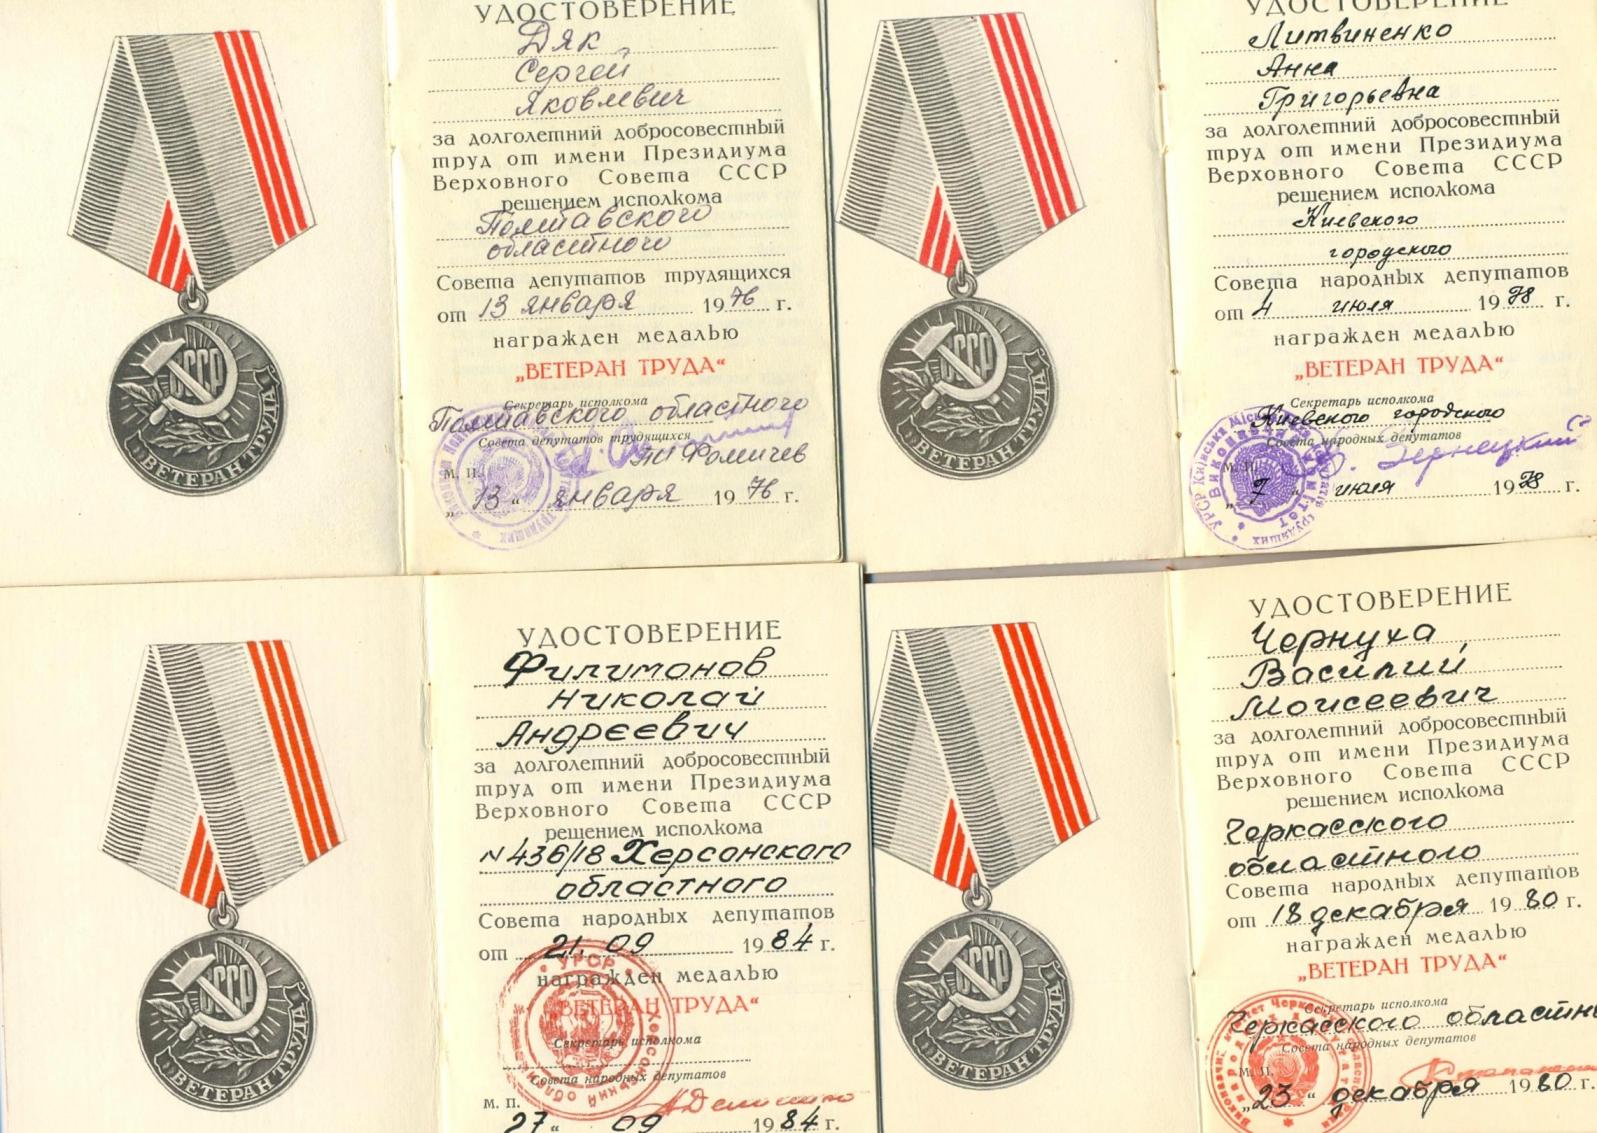 УДОСТОВЕРЕНИЕ
Дяк
Сергей
Яковлевич
за долголетний добросовестный
труд от имени Президиума
Верховного Совета СССР
решением исполкома
Полтавского
областного
Совета депутатов трудящихся
от 13 января 1976 г.
награжден медалью
„ВЕТЕРАН ТРУДА“
Секретарь исполкома
Полтавского областного
Совета депутатов трудящихся
Фомичев
М. П.
„13“ января 1976 г.
СССР
„ВЕТЕРАН ТРУДА“
УДОСТОВЕРЕНИЕ
Литвиненко
Анна
Григорьевна
за долголетний добросовестный
труд от имени Президиума
Верховного Совета СССР
решением исполкома
Киевского
городского
Совета народных депутатов
от 4 июля 1978 г.
награжден медалью
„ВЕТЕРАН ТРУДА“
Секретарь исполкома
Киевского городского
Совета народных депутатов
М. П.
„7“ июля 1978 г.
СССР
„ВЕТЕРАН ТРУДА“
УДОСТОВЕРЕНИЕ
Филимонов
Николай
Андреевич
за долголетний добросовестный
труд от имени Президиума
Верховного Совета СССР
решением исполкома
N 436/18 Херсонского
областного
Совета народных депутатов
от 21. 09 1984 г.
награжден медалью
„ВЕТЕРАН ТРУДА“
Секретарь исполкома
Совета народных депутатов
м. п.
27“ 09 1984 г.
СССР
„ВЕТЕРАН ТРУДА“
УДОСТОВЕРЕНИЕ
Чернуха
Василий
Моисеевич
за долголетний добросовестный
труд от имени Президиума
Верховного Совета СССР
решением исполкома
Черкасского
областного
Совета народных депутатов
от 18 декабря 1980 г.
награжден медалью
„ВЕТЕРАН ТРУДА“
Секретарь исполкома
Черкасского областн
Совета народных депутатов
М. П.
„23“ декабря 1980 г.
СССР
„ВЕТЕРАН ТРУДА“